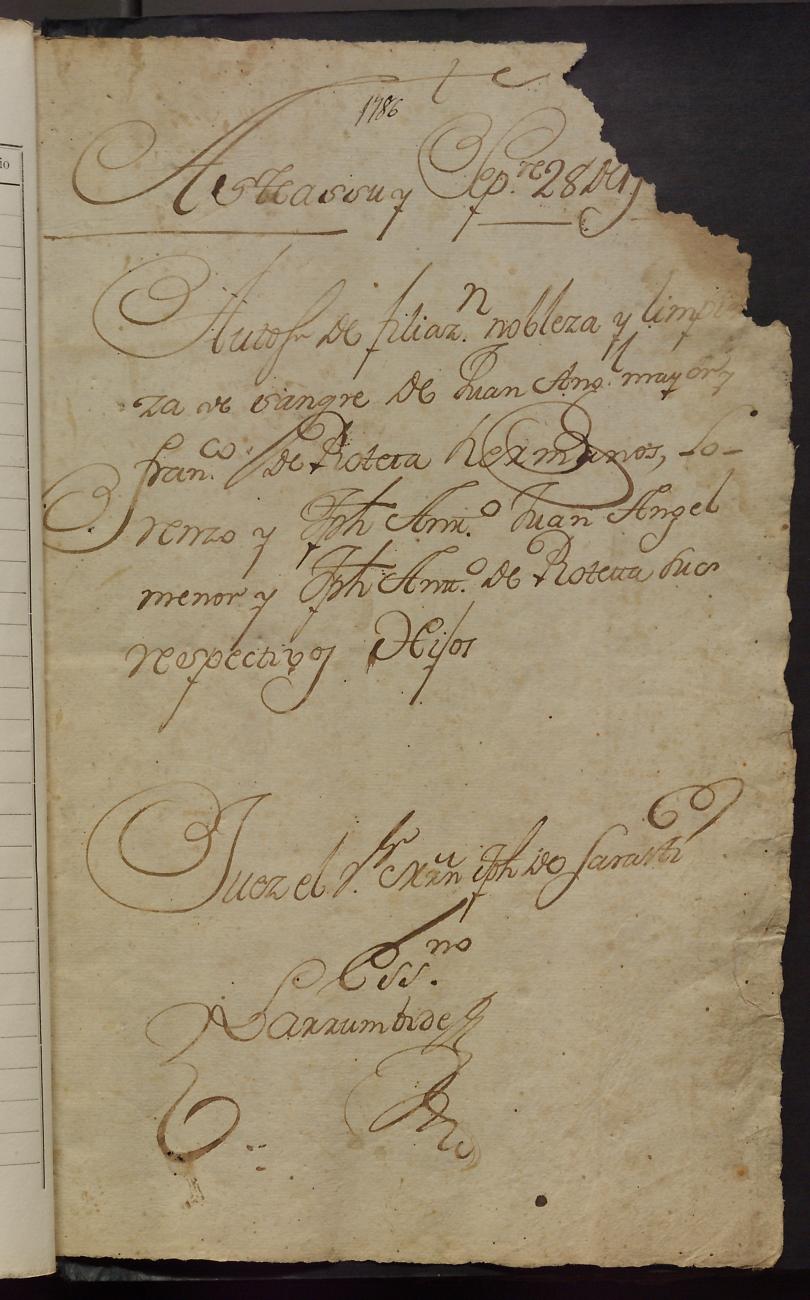 1786
Asteassu y Sep.re 28 de 1
Autos de filiaz.n nobleza y limpie
za de sangre de Juan Ang.l mayor y
Fran.co de Roteta hermanos, Lo-
renzo y Jph Antt.o Juan Angel
menor y Jph Antt.o de Roteta sus
respectivos Hijos
Juez el S.r Mrn Jph de Sarasti
Ess.no
Larrumbide
io